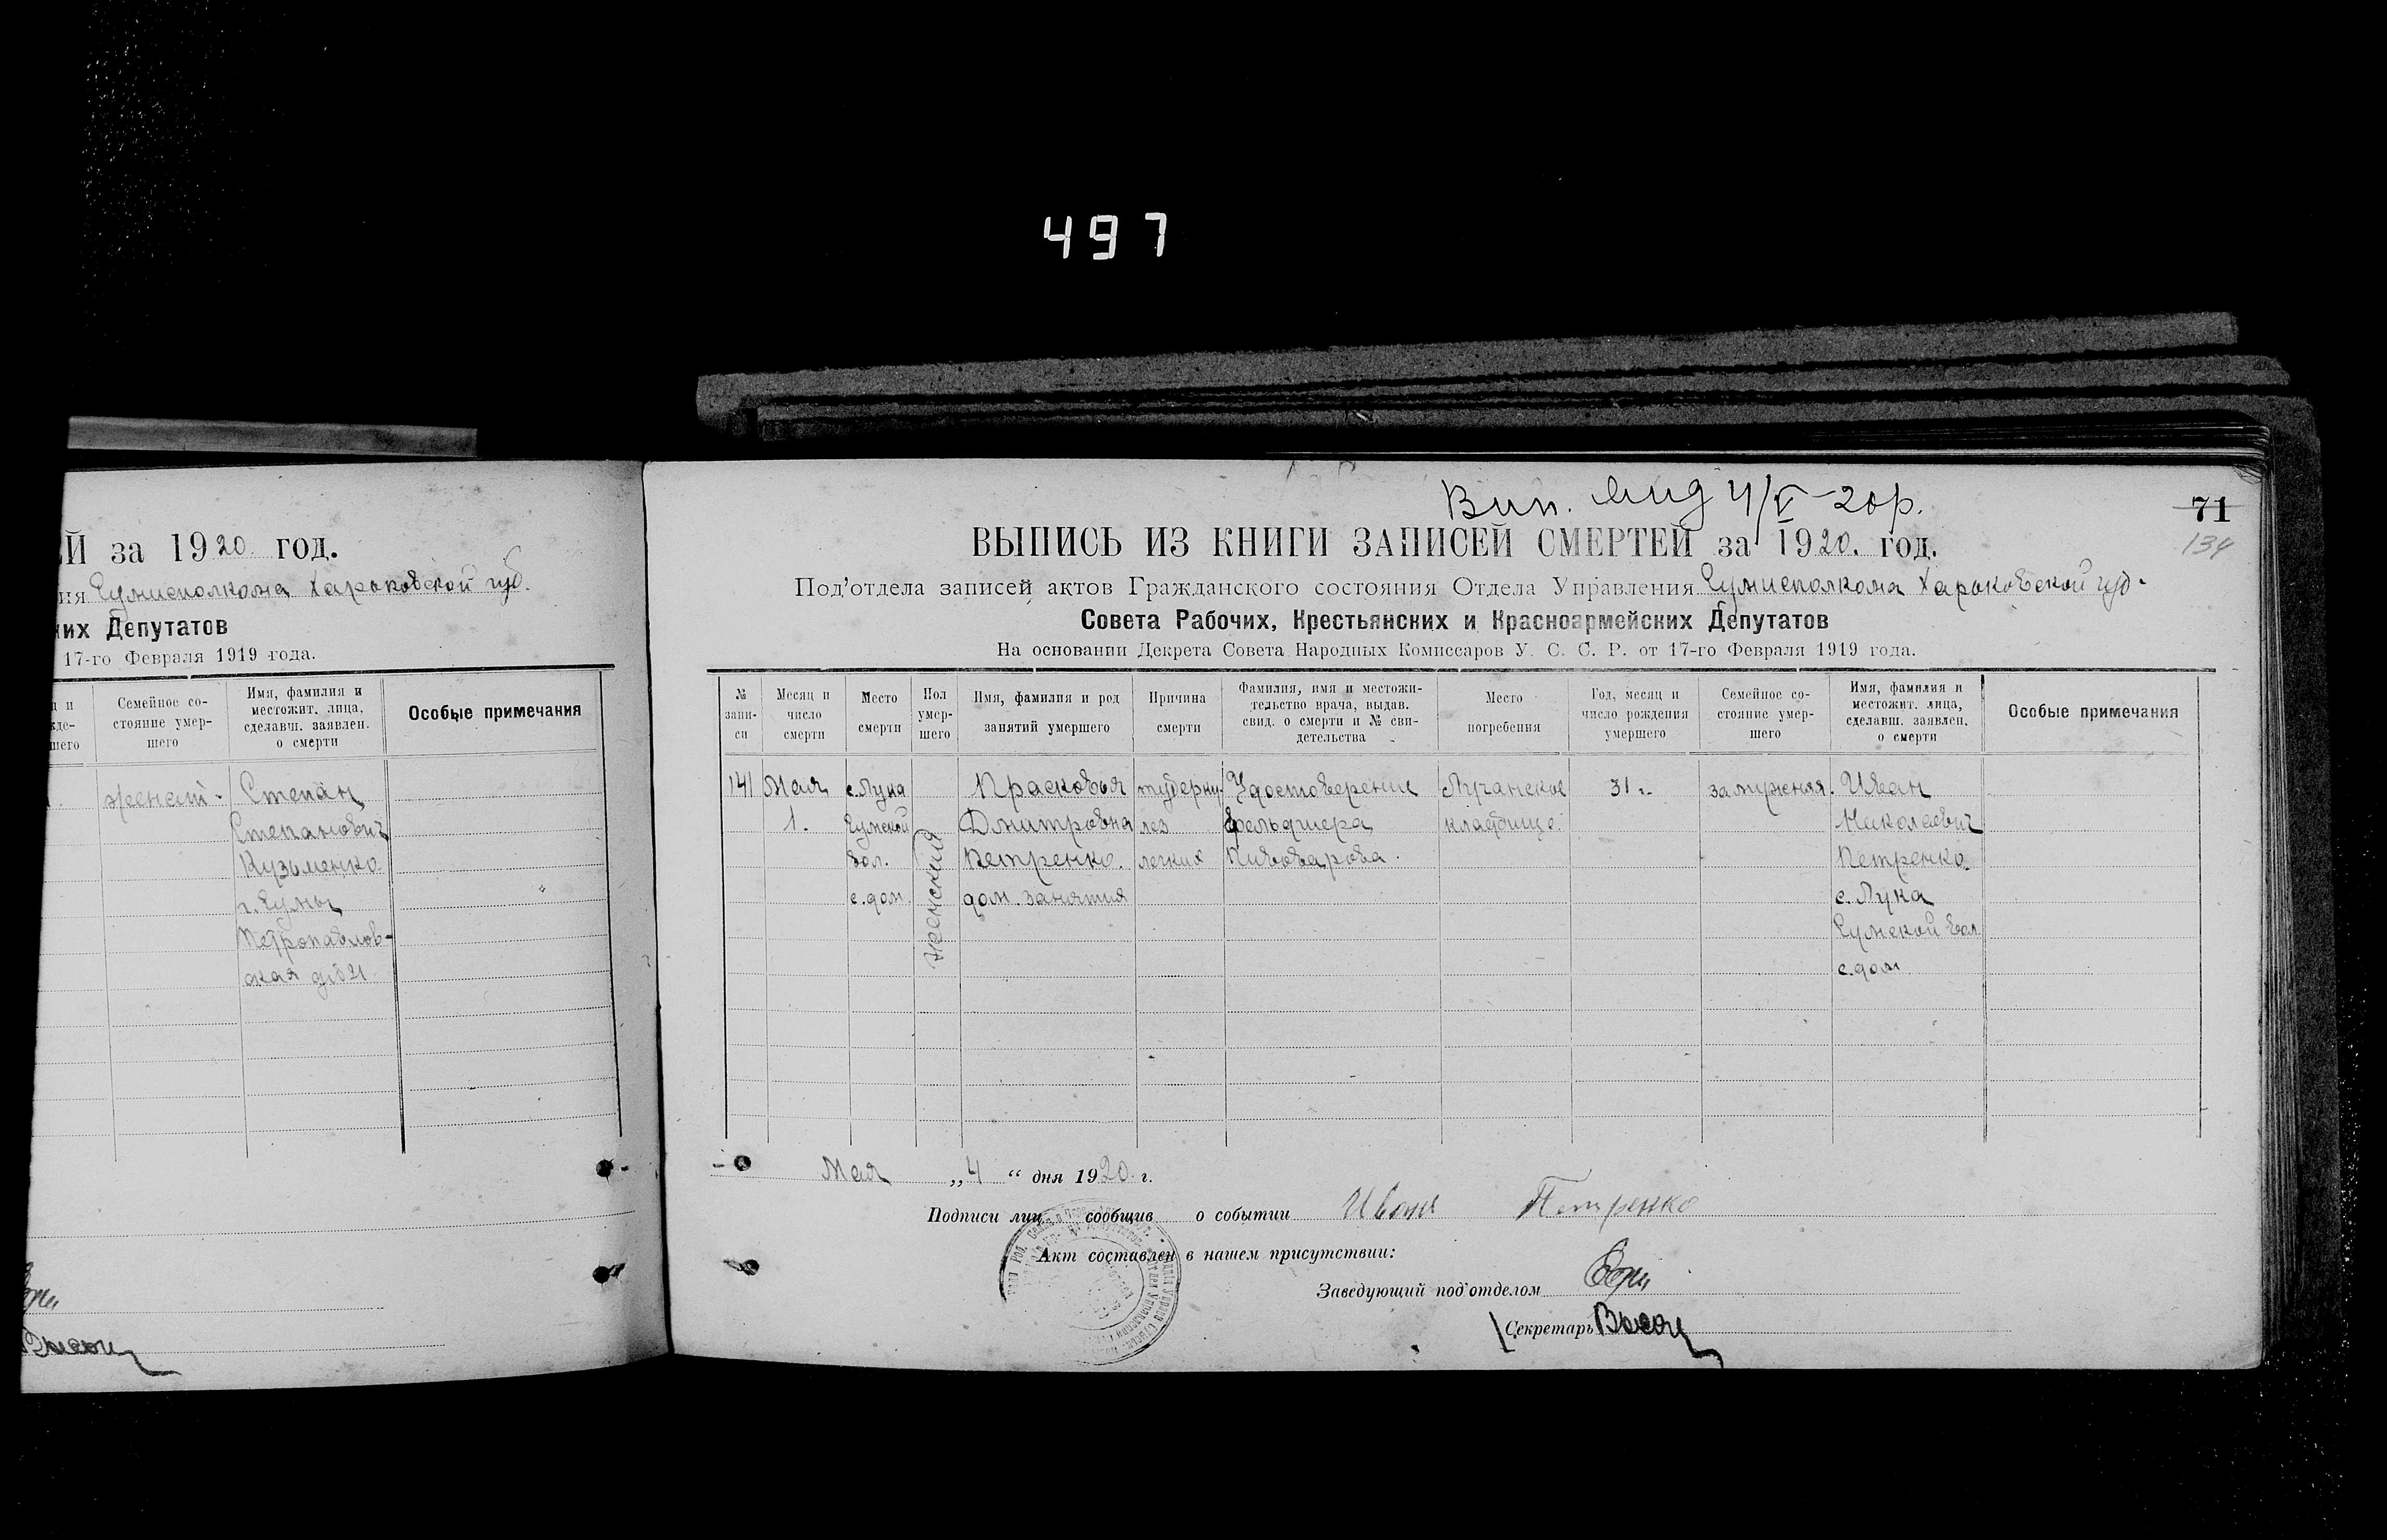 497
ЕЙ за 1920 год.
ия Сумисполкома Харьковской губ.
них Депутатов
17-го Февраля 1919 года.
Семейное со-
стояние умер-
шего
Имя, фамилия и
местожит. лица,
сделавш. заявлен.
о смерти
Особые примечания
женат.
Степан
Степанович
Кузьменко
г. Сумы
Петропавлов-
ская
71
134
Вип. 4/V-20р.
ВЫПИСЬ ИЗ КНИГИ ЗАПИСЕЙ СМЕРТЕЙ за 1920. год.
Под'отдела записей актов Гражданского состояния Отдела Управления Сумисполкома Харьковской губ.
Совета Рабочих, Крестьянских и Красноармейских Депутатов
На основании Декрета Совета Народных Комиссаров У. С. С. Р. от 17-го Февраля 1919 года.
№
запи-
си
Месяц и
число
смерти
Место
смерти
Пол
умер-
шего
Имя, фамилия и род
занятий умершего
Причина
смерти
Фамилия, имя и местожи-
тельство врача, выдав.
свид. о смерти и № сви-
детельства
Место
погребения
Год, месяц и
число рождения
умершего
Семейное со-
стояние умер-
шего
Имя, фамилия и
местожит. лица,
сделавш. заявлен.
о смерти
Особые примечания
141
Мая
1.
с. Лука
Сумской
вол.
с. дом.
женский
Прасковья
Дмитровна
Петренко.
дом. занятия
туберку-
лез
легких
Удостоверение
фельдшера
Пивоварова.
Лучанское
кладбище.
31 г.
замужняя.
Иван
Николаевич
Петренко.
с. Лука
Сумской вол.
с. дом
Мая „4“ дня 1920 г.
Подписи лиц сообщив о событии Иван Петренко
Акт составлен в нашем присутствии:
Заведующий под'отделом
Секретарь